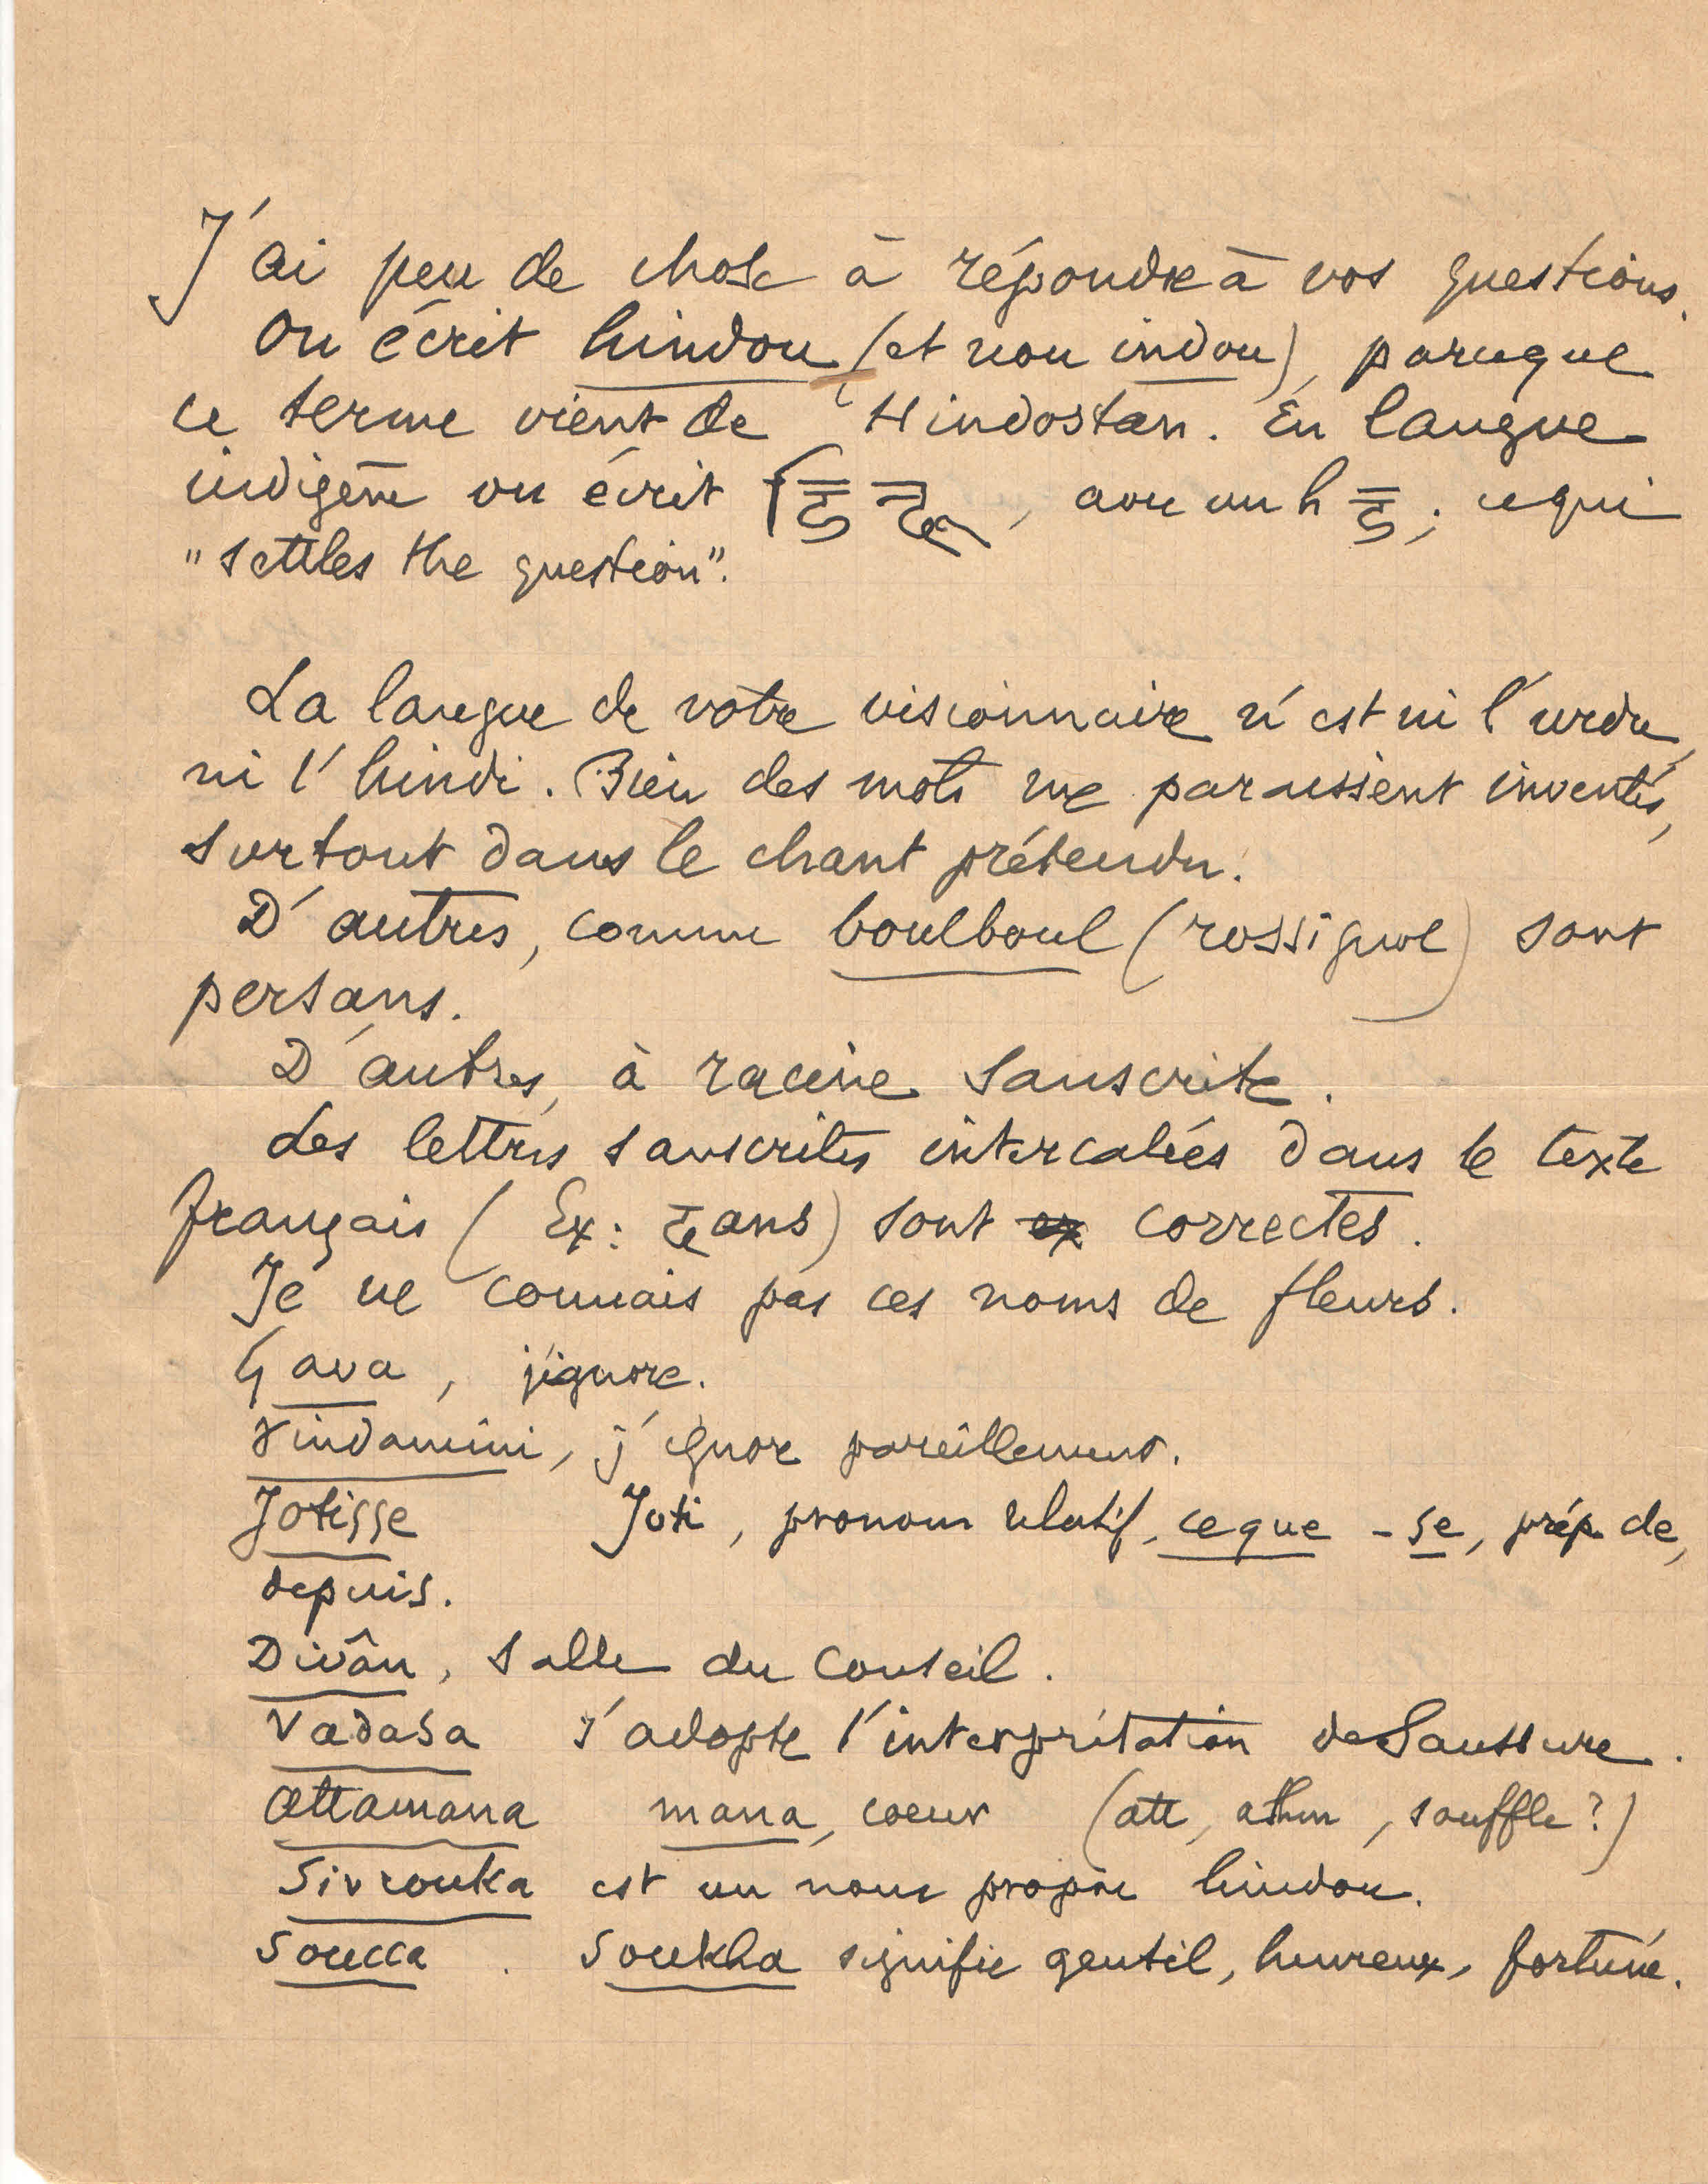 J'ai peu de chose à répondre à vos questions.
On écrit hindou (et non indou), parceque
ce terme vient de Hindostan. En langue
indigène on écrit हिन्दू, avec un h ह; ce qui
"settles the question".
La langue de votre visionnaire n'est ni l'urdu,
ni l'hindi. Bien des mots me paraissent inventés,
surtout dans le chant prétendu.
D'autres, comme boulboul (rossignol) sont
persans.
D'autres, à racine sanscrite.
Les lettres sanscrites intercalées dans le texte
français (Ex: दans) sont ex correctes.
Je ne connais pas ces noms de fleurs.
Gava, j'ignore.
Vindamini, j'ignore pareillement.
Jotisse Joti, pronom relatif, ce que - se, prép. de,
depuis.
Divân, salle du Conseil.
Vadasa J'adopte l'interprétation de Saussure.
Attamana mana, coeur (att, athm, souffle?)
Sivrouka est un nom propre hindou.
Soucca. Soukha signifie gentil, heureux, fortuné.